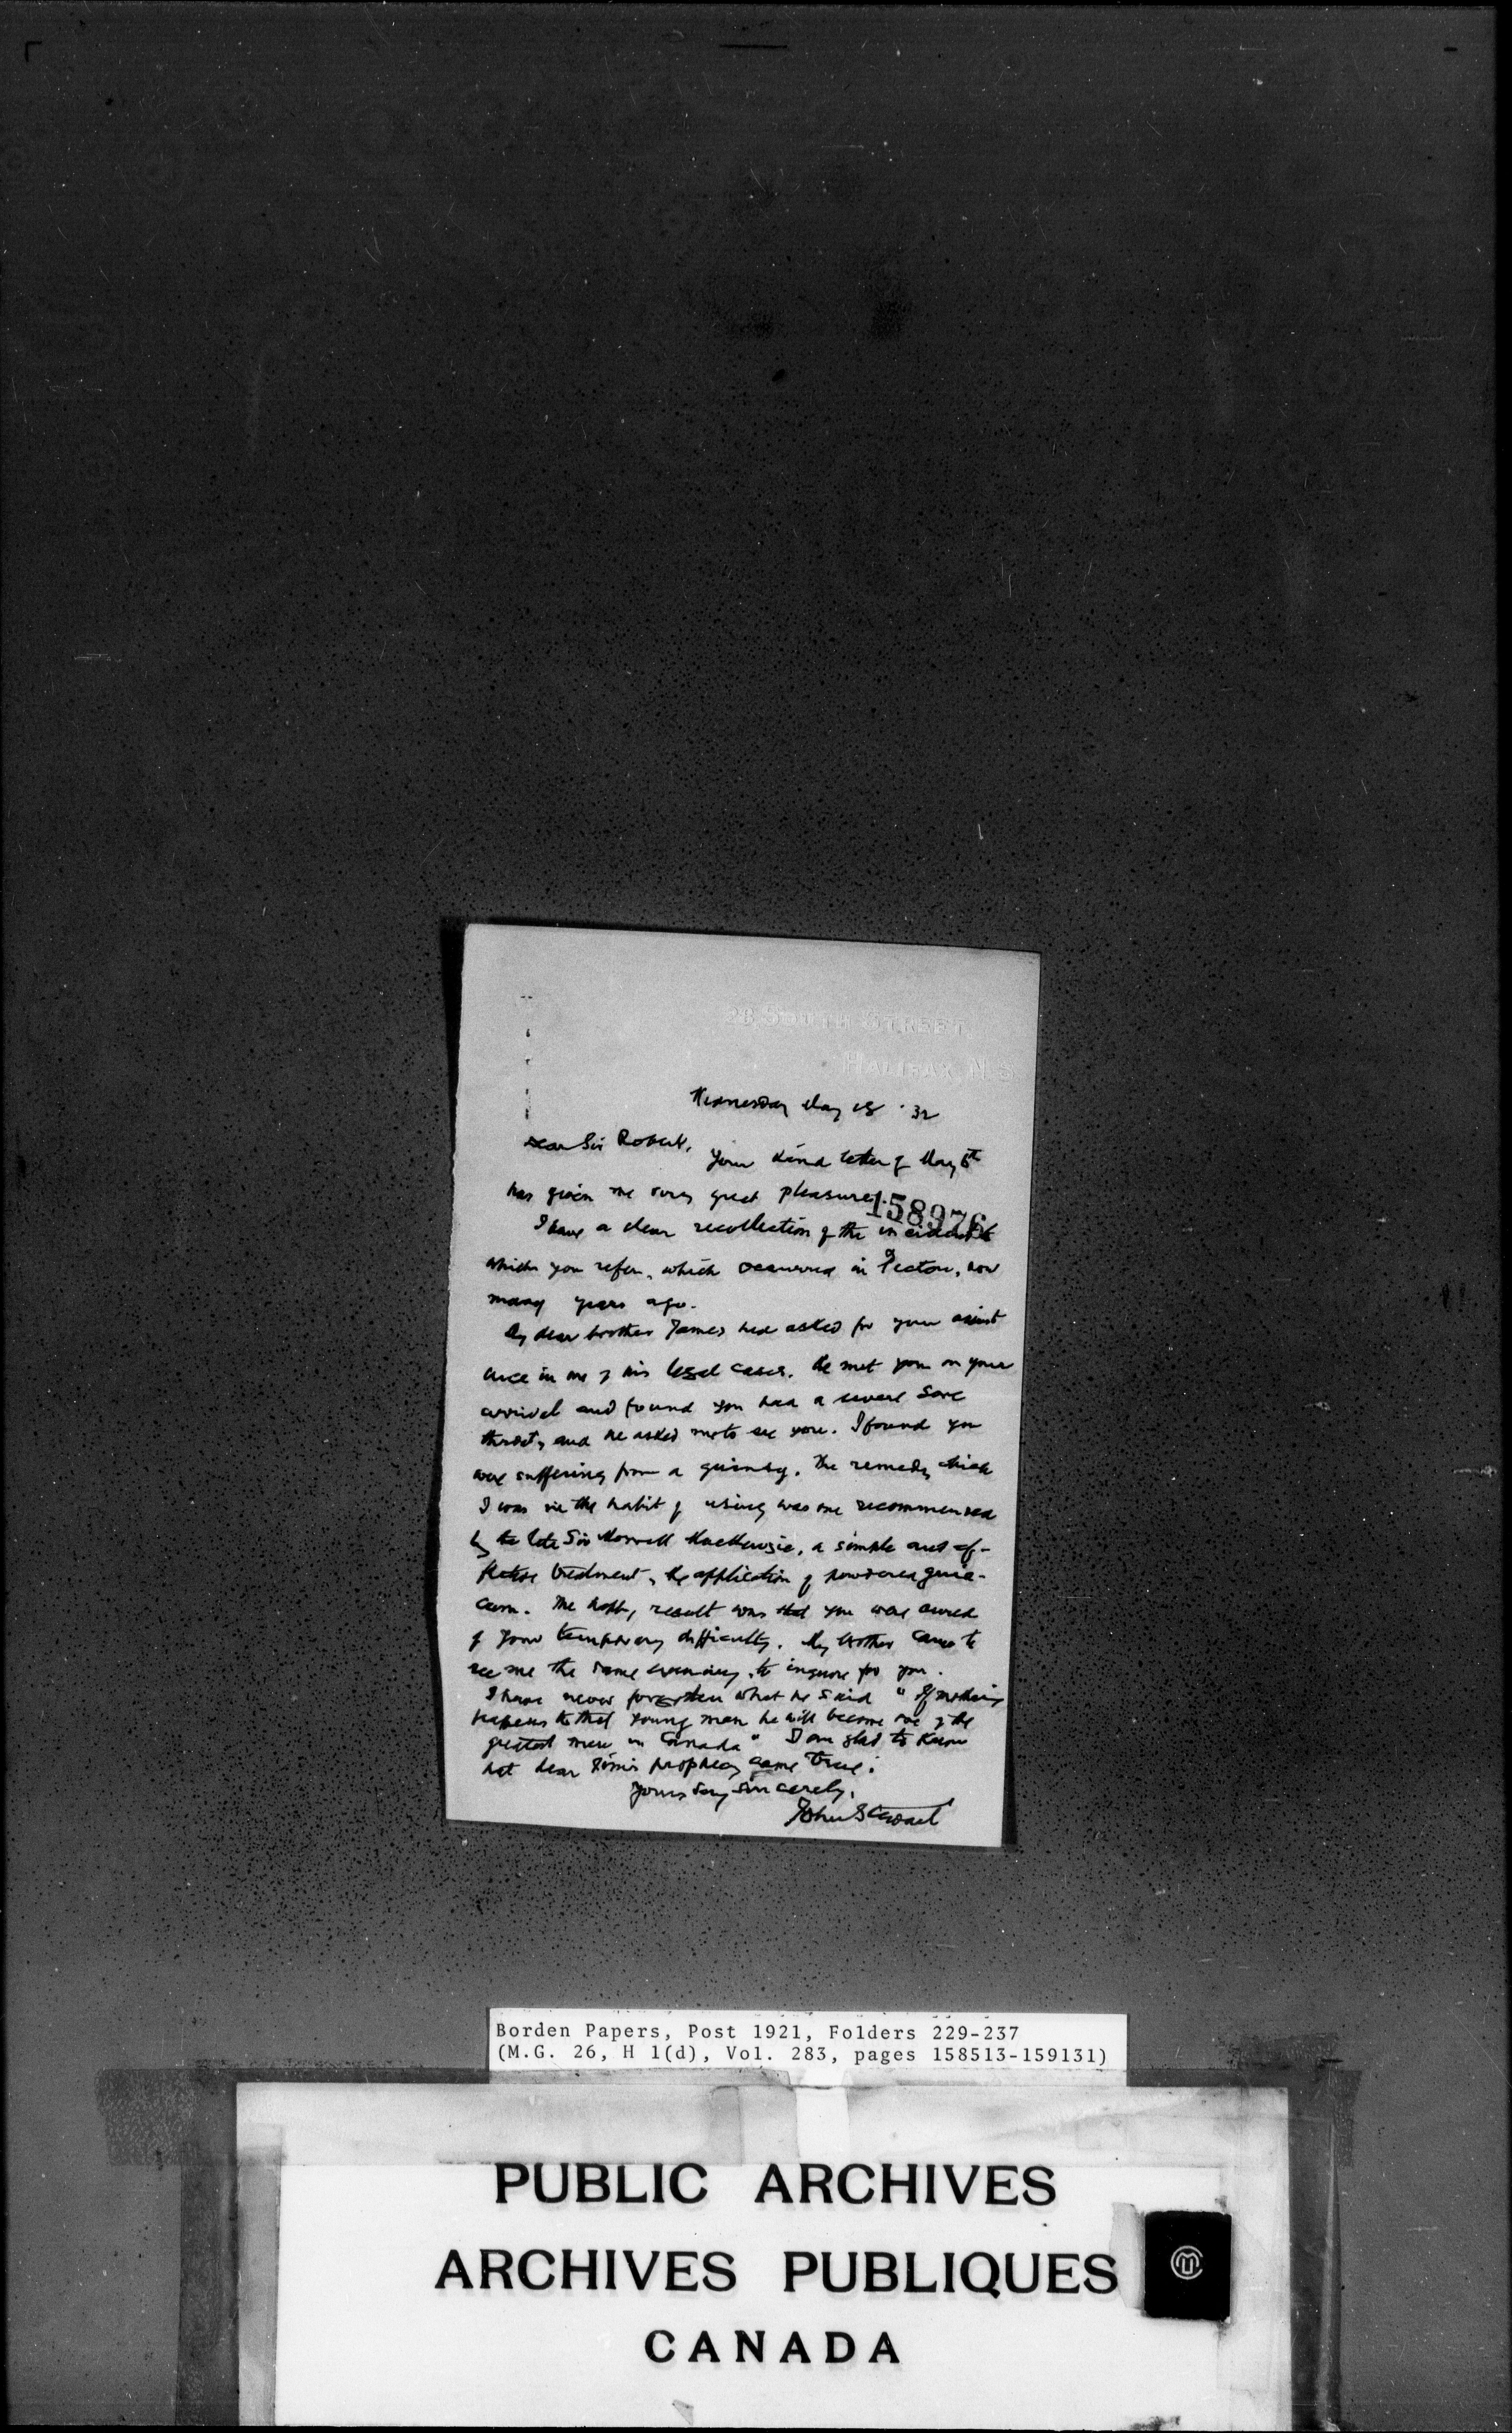 28 SOUTH STREET.
HALIFAX, N.S.
Wednesday May 18 '32
Dear Sir Robert,
Your kind letter of May 6th
has given me very great pleasure.
158976
I have a clear recollection of the incident to
which you refer, which occurred in Pictou, now
many years ago.
My dear brother James had asked for your assist
ance in one of his legal cases. He met you on your
arrival and found you had a severe sore
throat, and he asked me to see you. I found you
were suffering from a quinsy. The remedy which
I was in the habit of using was one recommended
by the late Sir Morrell MacKenzie, a simple and ef-
fective treatment, the application of powdered guia-
cum. The happy result was that you were cured
of your temporary difficulty. My brother came to
see me the same evening, to inquire for you.
I have never forgotten what he said "If nothing
happens to that young man he will become one of the
greatest men in Canada" I am glad to know
that dear Jim's prophecy came true.
Yours very sincerely,
John Stewart
Borden Papers, Post 1921, Folders 229-237
(M.G. 26, H 1(d), Vol. 283, pages 158513-159131)
PUBLIC ARCHIVES
ARCHIVES PUBLIQUES
CANADA